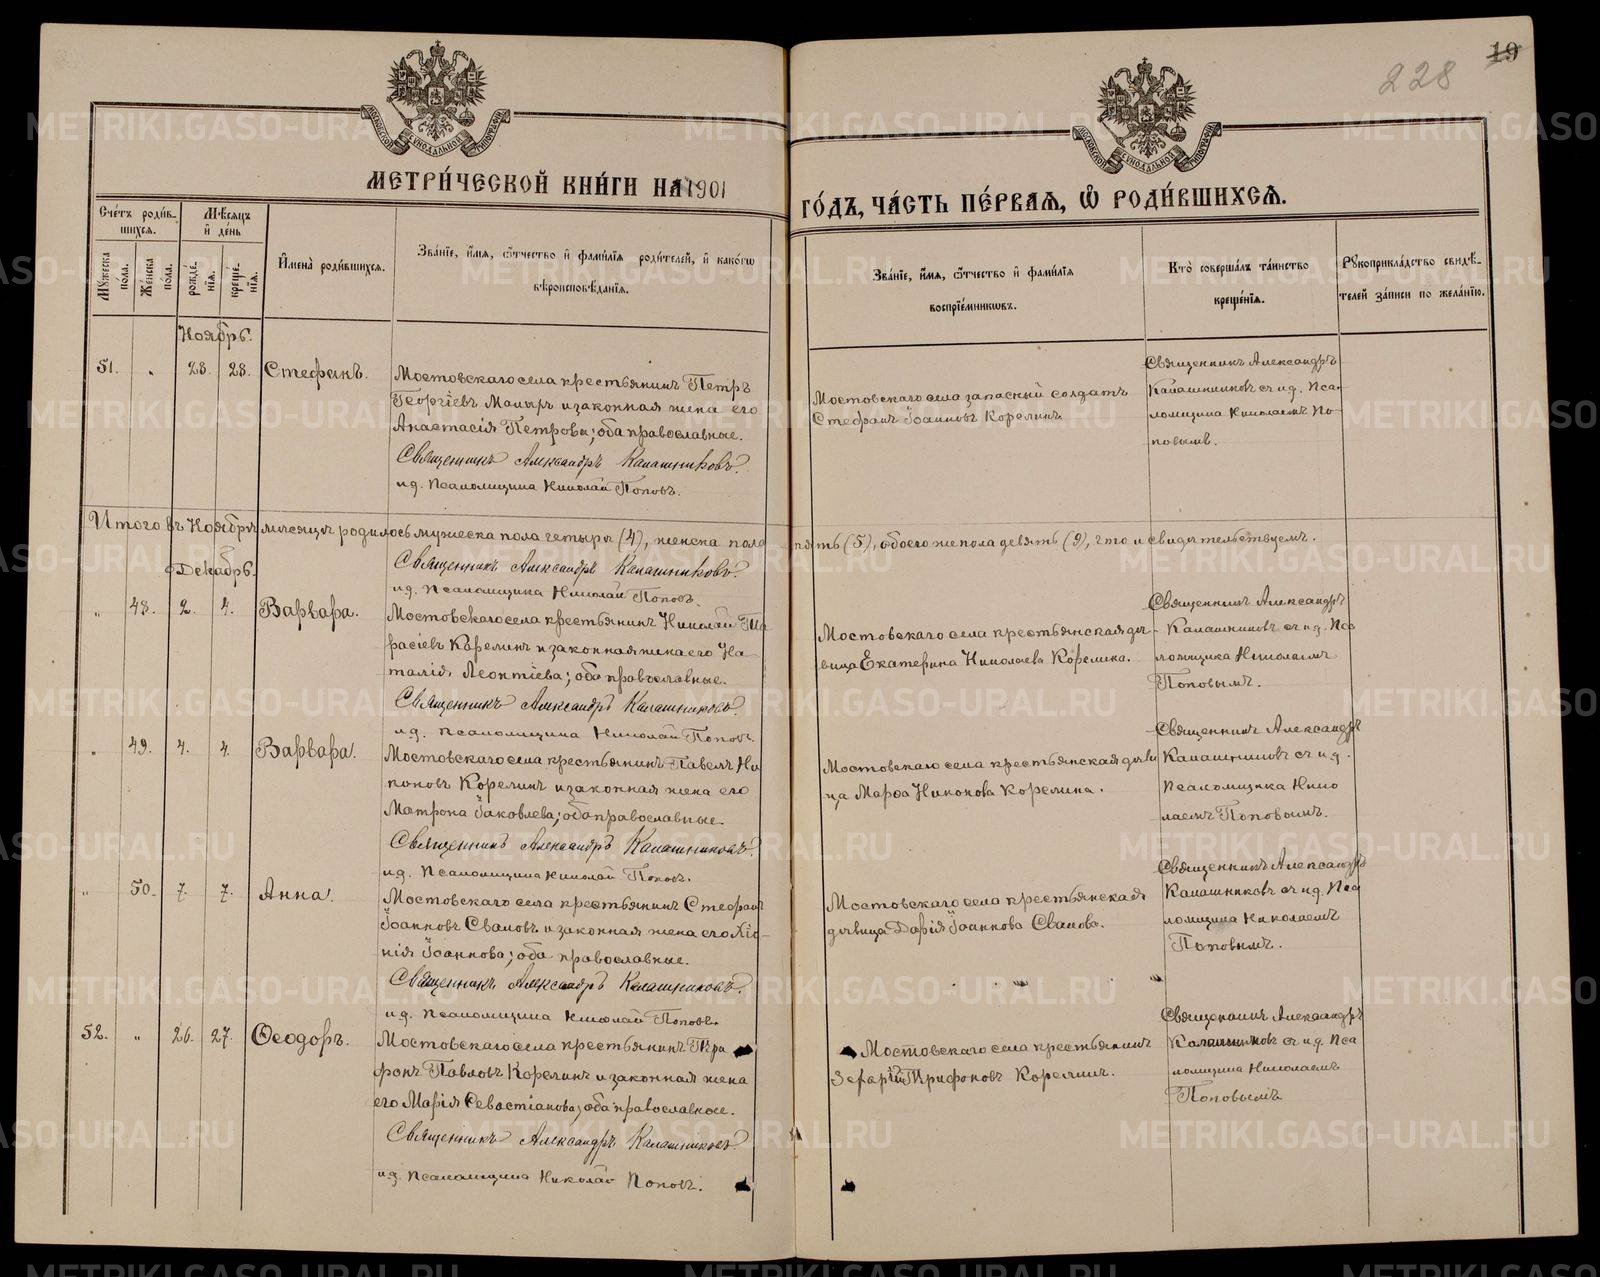 228
19
МЕТРИ́ЧЕСКОЙ КНИ́ГИ НА 1901
ГО́ДЪ, ЧА́СТЬ ПЕ́РВАѦ, Ѽ РОДИ́ВШИХСѦ.
МОСКОВСКОЙ СѴНОДАЛЬНОЙ ТИПОГРАФІИ
МОСКОВСКОЙ СѴНОДАЛЬНОЙ ТИПОГРАФІИ
Сче́тъ роди́в-
шихсѧ.
Мѣ́сѧцъ
и҆ день
Мꙋ́жеска по́ла.
Же́нска по́ла.
рожде́нїѧ.
креще́нїѧ.
И҆мена̀ роди́вшихсѧ.
Зва́нїе, и҆́мѧ, ѻ҆́тчество и҆ фами́лїѧ роди́телей, и҆ како́гѡ
вѣроисповѣ́данїѧ.
Зва́нїе, и҆́мѧ, ѻ҆́тчество и҆ фами́лїѧ
воспрїе́мникѡвъ.
Кто̀ соверша́лъ та́инство
креще́нїѧ.
Рꙋкоприкла́дство свидѣ́-
телей за́писи по жела́нїю.
Ноябрь.
51. „ 23. 23. Стефанъ.
Мостовскаго села крестьянинъ Петръ
Георгіевъ Мамыръ и законная жена его
Анастасія Петрова; оба православные.
Священникъ Александръ Калашниковъ.
и.д. Псаломщика Николай Поповъ.
Мостовскаго села запасный солдатъ
Стефанъ Іоанновъ Корелинъ.
Священникъ Александръ
Калашниковъ съ и.д. Пса-
ломщика Николаемъ По-
повымъ.
Итого въ Ноябрѣ мѣсяцѣ родилось мужеска пола четыре (4), женска пола пять (5), обоего же пола девять (9), что и свидѣтельствуемъ.
Священникъ Александръ Калашниковъ.
и.д. Псаломщика Николай Поповъ.
Декабрь.
„ 48. 2. 4. Варвара.
Мостовскаго села крестьянинъ Николай Та
расіевъ Корелинъ и законная жена его На
талія Леонтіева; оба православные.
Священникъ Александръ Калашниковъ.
и.д. Псаломщика Николай Поповъ.
Мостовскаго села крестьянская дѣ-
вица Екатерина Николаева Корелина.
Священникъ Александръ
Калашниковъ съ и.д. Пса
ломщика Николаемъ
Поповымъ.
„ 49. 4. 4. Варвара.
Мостовскаго села крестьянинъ Павелъ Ни
коновъ Корелинъ и законная жена его
Матрона Іаковлева; оба православные.
Священникъ Александръ Калашниковъ.
и.д. Псаломщика Николай Поповъ.
Мостовскаго села крестьянская дѣви
ца Марѳа Никонова Корелина.
Священникъ Александръ
Калашниковъ съ и.д.
Псаломщика Нико
лаемъ Поповымъ.
„ 50. 7. 7. Анна.
Мостовскаго села крестьянинъ Стефанъ
Іоанновъ Сваловъ и законная жена его Хіо-
нія Іоаннова; оба православные.
Священникъ Александръ Калашниковъ.
и.д. Псаломщика Николай Поповъ.
Мостовскаго села крестьянская
дѣвица Дарія Іоаннова Свалова.
Священникъ Александръ
Калашниковъ съ и.д. Пса
ломщика Николаемъ
Поповымъ.
52. „ 26. 27. Ѳеодоръ.
Мостовскаго села крестьянинъ Три
фонъ Павловъ Корелинъ и законная жена
его Марія Севастіанова; оба православные.
Священникъ Александръ Калашниковъ.
и.д. Псаломщика Николай Поповъ.
Мостовскаго села крестьянинъ
Зефирій Трифоновъ Корелинъ.
Священникъ Александръ
Калашниковъ съ и.д. Пса
ломщика Николаемъ
Поповымъ.
METRIKI.GASO-URAL.RU